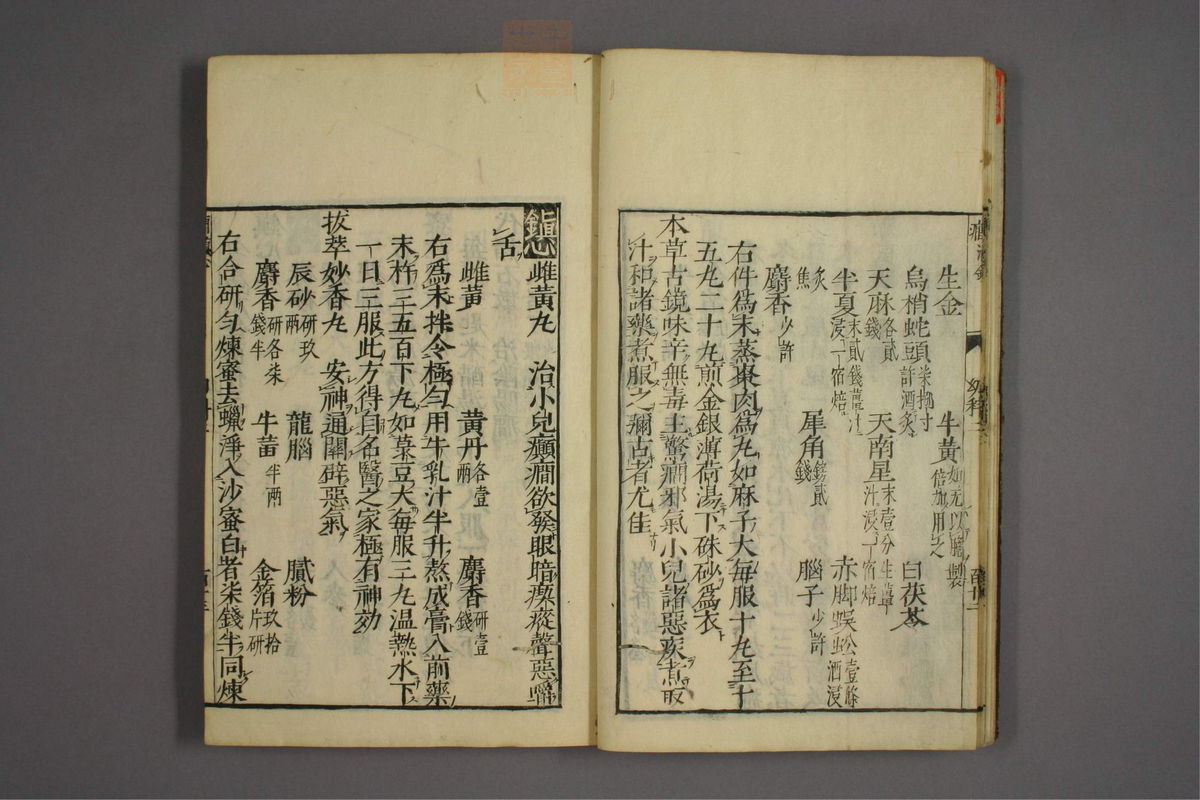 生金 牛黃如无以膽製倍加用之 白茯苓
烏梢蛇頭柒拇寸許酒炙
天麻各貳錢 天南星末壹分生薑汁浸一宿焙 赤脚蜈蚣壹條酒浸
半夏末貳錢薑汁浸一宿焙 犀角鎊貳錢 腦子少許
炙焦
麝香少許
右件爲末蒸棗肉爲丸如麻子大每服十九至十
五九二十九煎金銀薄荷湯下硃砂爲衣
本草古鏡味辛無毒主驚癇邪氣小兒諸惡疾煮取
汁和諸藥煮服之彌古者尤佳
雌黃丸 治小兒癲癇欲發眼暗瘈瘲聲惡嚼
舌
雌黃 黃丹各壹兩 麝香研壹錢
右爲末拌令極勻用牛乳汁半升熬成膏入前藥
末杵三五百下丸如菉豆大每服三九温熱水下
一日三服此方得自名醫之家極有神効
拔萃妙香丸 安神通關辟惡氣
辰砂研玖兩 龍腦 膩粉
麝香研各柒錢半 牛黃半兩 金箔玖拾片研
右合研勻煉蜜去蠟淨入沙蜜白者柒錢半同煉